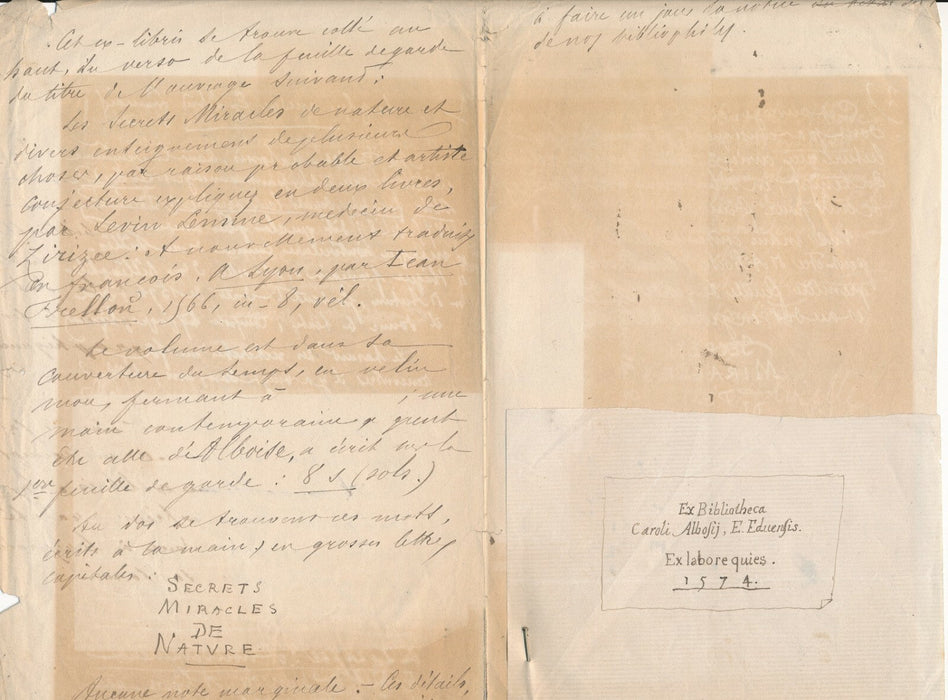 Cet ex-libris se trouve collé au
haut, du verso de la feuille de garde
du titre de l'ouvrage suivant:
Les Secrets Miracles de nature et
divers enseignemens de plusieurs
choses, par raison probable et artiste
conjecture expliquez en deux livres,
par Levin Lemine, medecin de
Zirizee: et nouvellement traduis
en françois. A Lyon, par Iean
Frellon, 1566, in-8, vél.
Le volume est dans sa
couverture du temps, en vélin
mou, fermant à ; une
main contemporaine, qui peut
être celle d'Alboise, a écrit sur la
1ère feuille de garde: 8 s (sols.)
Au dos se trouvent ces mots,
écrits à la main, en grosses lettres
capitales:
SECRETS
MIRACLES
DE
NATVRE.
Aucune note marginale. - Ces détails,
à faire un jour la notice
de nos bibliophiles.
Ex Bibliotheca
Caroli Albosij, E. Eduensis.
Ex labore quies.
1574.